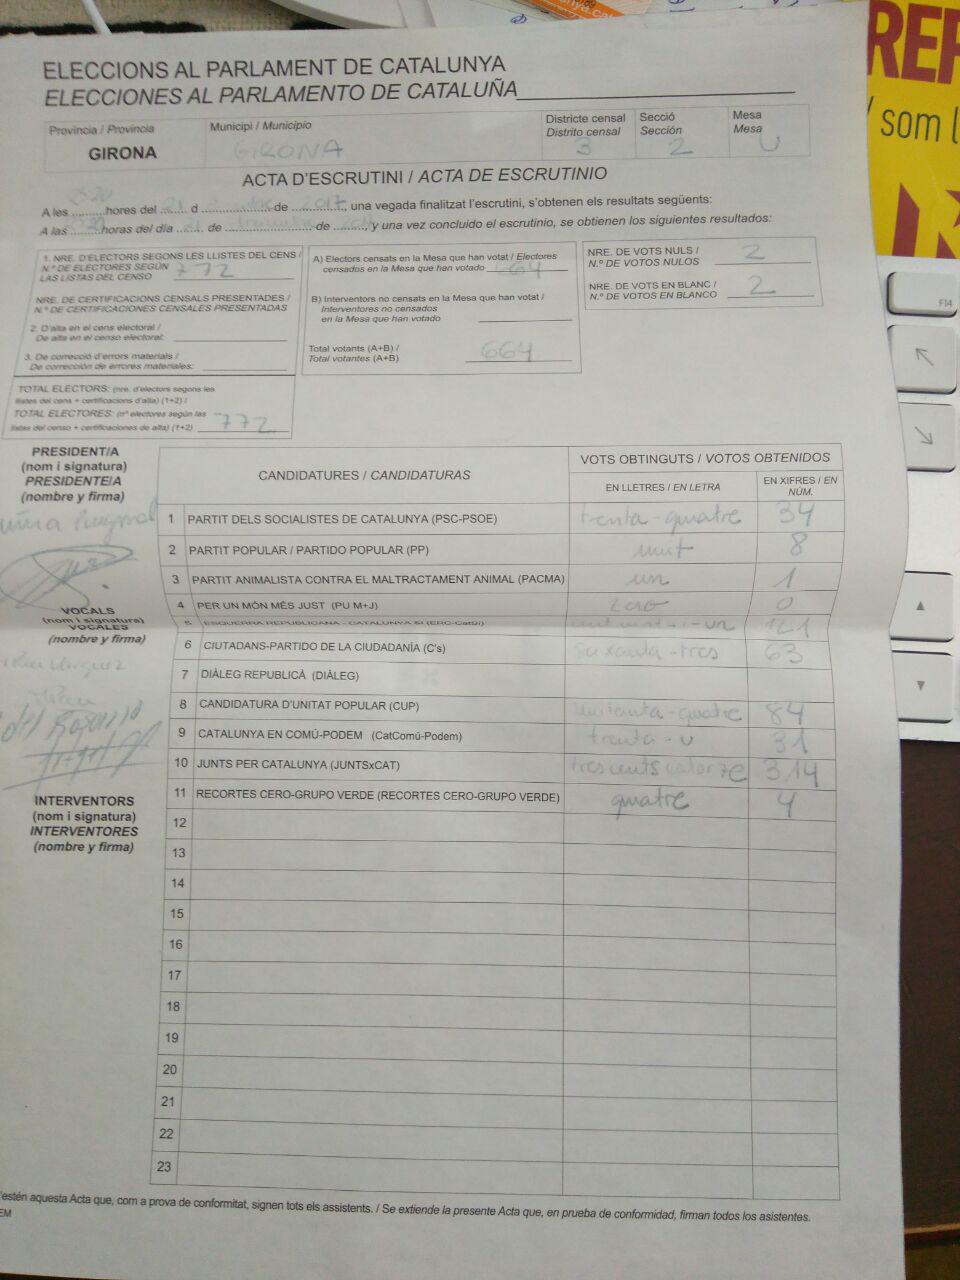 REF
som l
F14
ELECCIONS AL PARLAMENT DE CATALUNYA
ELECCIONES AL PARLAMENTO DE CATALUÑA
Provincia / Provincia
GIRONA
Municipi / Municipio
GIRONA
Districte censal
Distrito censal
3
Secció
Sección
2
Mesa
Mesa
U
ACTA D'ESCRUTINI / ACTA DE ESCRUTINIO
A les ..........hores del 21 d .................. de 2017, una vegada finalitzat l'escrutini, s'obtenen els resultats següents:
A las ..........horas del día ....... de .................. de ........, y una vez concluido el escrutinio, se obtienen los siguientes resultados:
1. NRE. D'ELECTORS SEGONS LES LLISTES DEL CENS /
N.º DE ELECTORES SEGÚN
LAS LISTAS DEL CENSO 772
NRE. DE CERTIFICACIONS CENSALS PRESENTADES /
N.º DE CERTIFICACIONES CENSALES PRESENTADAS
2. D'alta en el cens electoral /
De alta en el censo electoral:
3. De correcció d'errors materials /
De corrección de errores materiales:
TOTAL ELECTORS: (nre. d'electors segons les
llistes del cens + certificacions d'alta) (1+2) /
TOTAL ELECTORES: (nº electores según las
listas del censo + certificaciones de alta) (1+2) 772
A) Electors censats en la Mesa que han votat / Electores
censados en la Mesa que han votado 664
B) Interventors no censats en la Mesa que han votat /
Interventores no censados
en la Mesa que han votado
Total votants (A+B) /
Total votantes (A+B) 664
NRE. DE VOTS NULS /
N.º DE VOTOS NULOS 2
NRE. DE VOTS EN BLANC /
N.º DE VOTOS EN BLANCO 2
PRESIDENT/A
(nom i signatura)
PRESIDENTE/A
(nombre y firma)
VOCALS
(nom i signatura)
VOCALES
(nombre y firma)
del Rosario
INTERVENTORS
(nom i signatura)
INTERVENTORES
(nombre y firma)
CANDIDATURES / CANDIDATURAS
VOTS OBTINGUTS / VOTOS OBTENIDOS
EN LLETRES / EN LETRA
EN XIFRES / EN
NÚM.
1 PARTIT DELS SOCIALISTES DE CATALUNYA (PSC-PSOE) trenta-quatre 34
2 PARTIT POPULAR / PARTIDO POPULAR (PP) vuit 8
3 PARTIT ANIMALISTA CONTRA EL MALTRACTAMENT ANIMAL (PACMA) un 1
4 PER UN MÓN MÉS JUST (PU M+J) zero 0
5 ESQUERRA REPUBLICANA - CATALUNYA SÍ (ERC-CatSí) cent vint-i-un 121
6 CIUTADANS-PARTIDO DE LA CIUDADANÍA (C's) seixanta-tres 63
7 DIÀLEG REPUBLICÀ (DIÀLEG)
8 CANDIDATURA D'UNITAT POPULAR (CUP) vuitanta-quatre 84
9 CATALUNYA EN COMÚ-PODEM (CatComú-Podem) trenta-u 31
10 JUNTS PER CATALUNYA (JUNTSxCAT) trescents catorze 314
11 RECORTES CERO-GRUPO VERDE (RECORTES CERO-GRUPO VERDE) quatre 4
12
13
14
15
16
17
18
19
20
21
22
23
'estén aquesta Acta que, com a prova de conformitat, signen tots els assistents. / Se extiende la presente Acta que, en prueba de conformidad, firman todos los asistentes.
EM